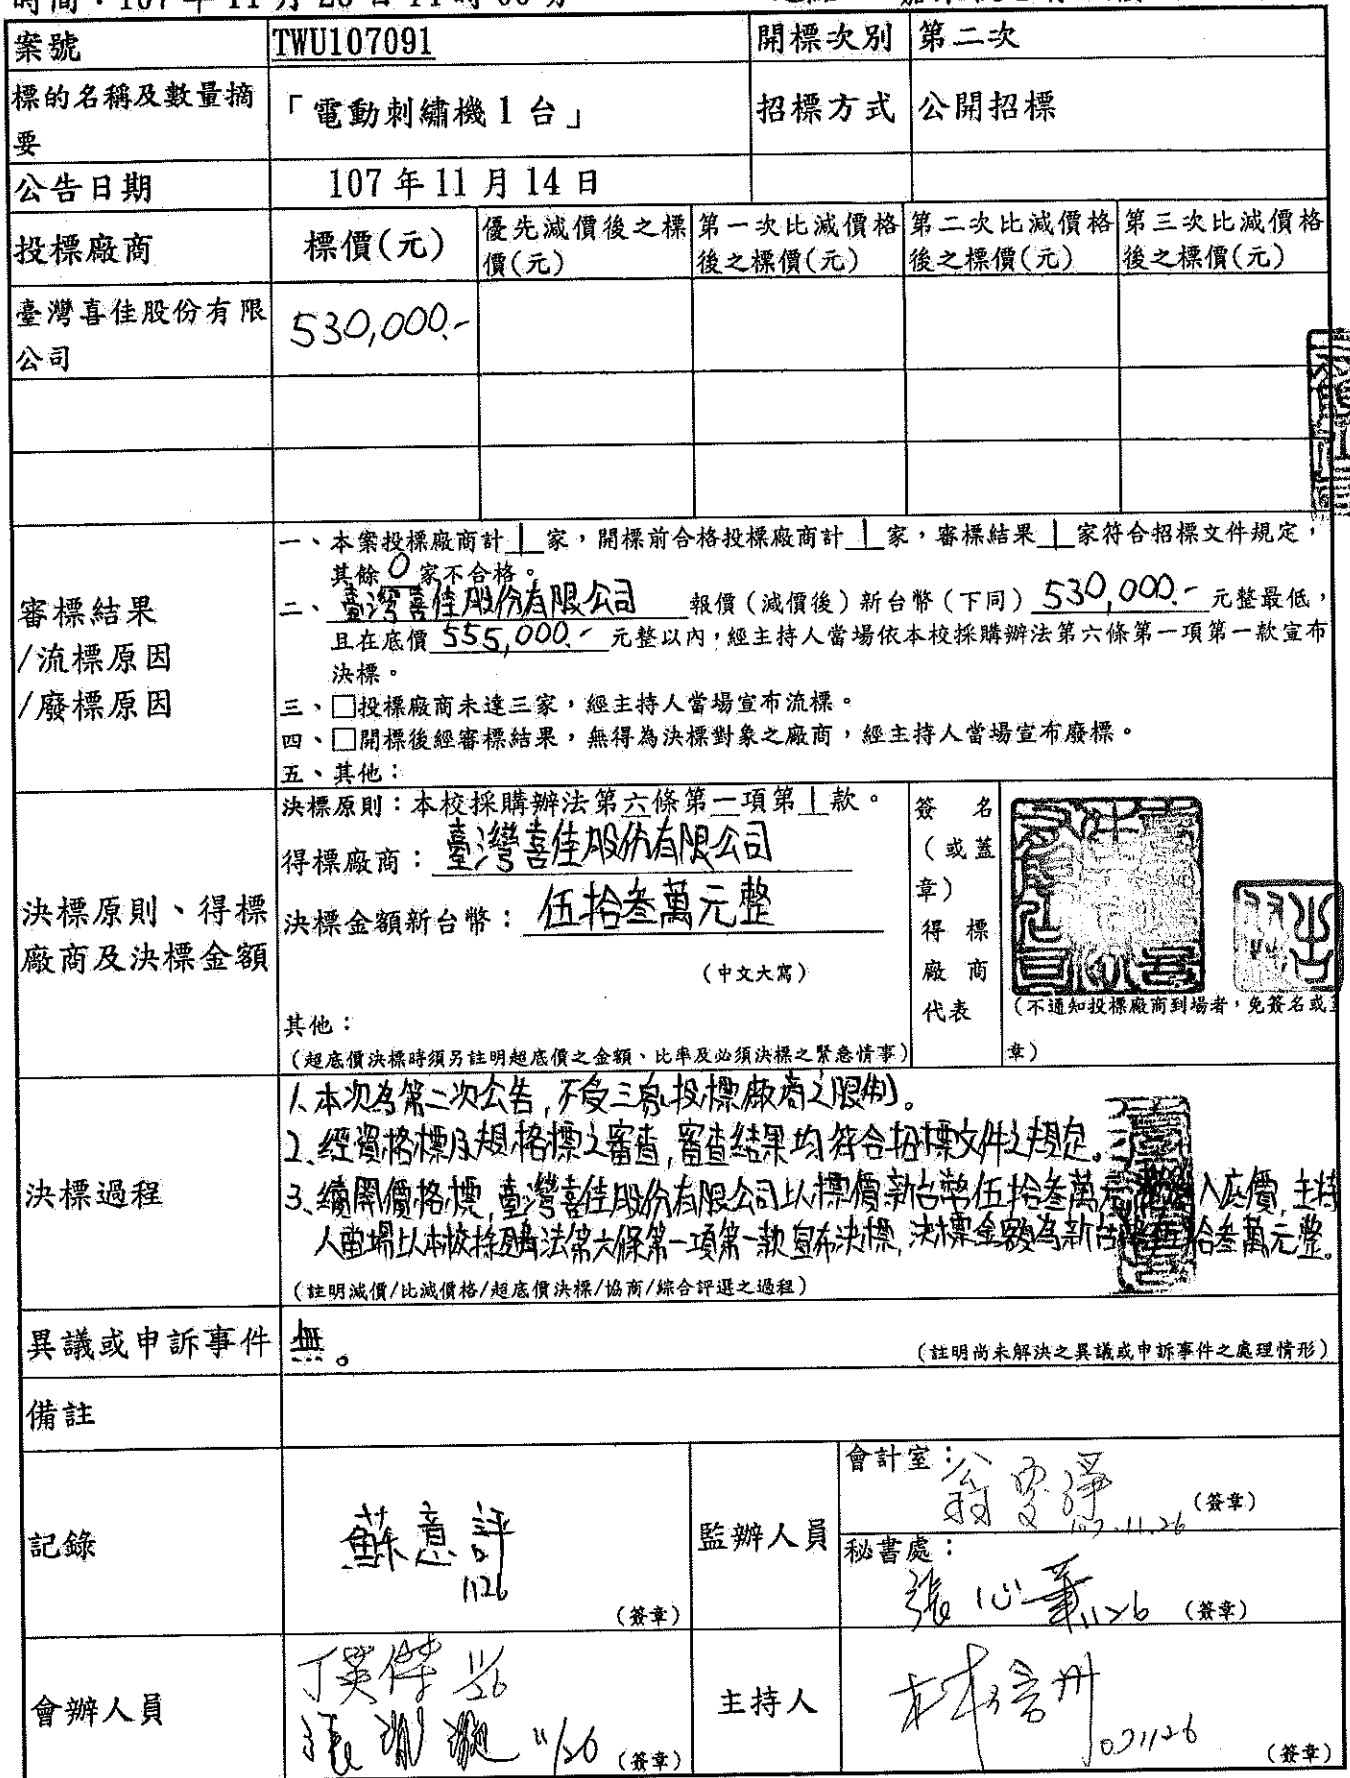 案號 TWU107091 開標次別 第二次
標的名稱及數量摘要 「電動刺繡機1台」 招標方式 公開招標
公告日期 107年11月14日
投標廠商 標價(元) 優先減價後之標價(元) 第一次比減價格後之標價(元) 第二次比減價格後之標價(元) 第三次比減價格後之標價(元)
臺灣喜佳股份有限公司 530,000.-
審標結果
/流標原因
/廢標原因
一、本案投標廠商計1家，開標前合格投標廠商計1家，審標結果1家符合招標文件規定，
其餘0家不合格。
二、臺灣喜佳股份有限公司 報價(減價後)新台幣(下同)530,000.-元整最低，
且在底價555,000.-元整以內，經主持人當場依本校採購辦法第六條第一項第一款宣布
決標。
三、□投標廠商未達三家，經主持人當場宣布流標。
四、□開標後經審標結果，無得為決標對象之廠商，經主持人當場宣布廢標。
五、其他：
決標原則、得標
廠商及決標金額
決標原則：本校採購辦法第六條第一項第1款。
得標廠商：臺灣喜佳股份有限公司
決標金額新台幣：伍拾叁萬元整
(中文大寫)
其他：
(超底價決標時須另註明超底價之金額、比率及必須決標之緊急情事)
簽名
(或蓋
章)
得標
廠商
代表
(不通知投標廠商到場者，免簽名或
章)
決標過程
1.本次為第二次公告，不受三家投標廠商之限制。
2.經資格標及規格標之審查，審查結果均符合招標文件之規定。
3.續開價格標，臺灣喜佳股份有限公司以標價新台幣伍拾叁萬元 入底價，主持
人當場以本校採購辦法第六條第一項第一款宣布決標，決標金額為新台幣伍拾叁萬元整。
(註明減價/比減價格/超底價決標/協商/綜合評選之過程)
異議或申訴事件 無。 (註明尚未解決之異議或申訴事件之處理情形)
備註
記錄 蘇意評 1126 (簽章)
監辦人員
會計室： 107.11.26 (簽章)
秘書處： 張心 1126 (簽章)
會辦人員 丁 傑 11/26
張 11/26 (簽章)
主持人 林 1071126 (簽章)